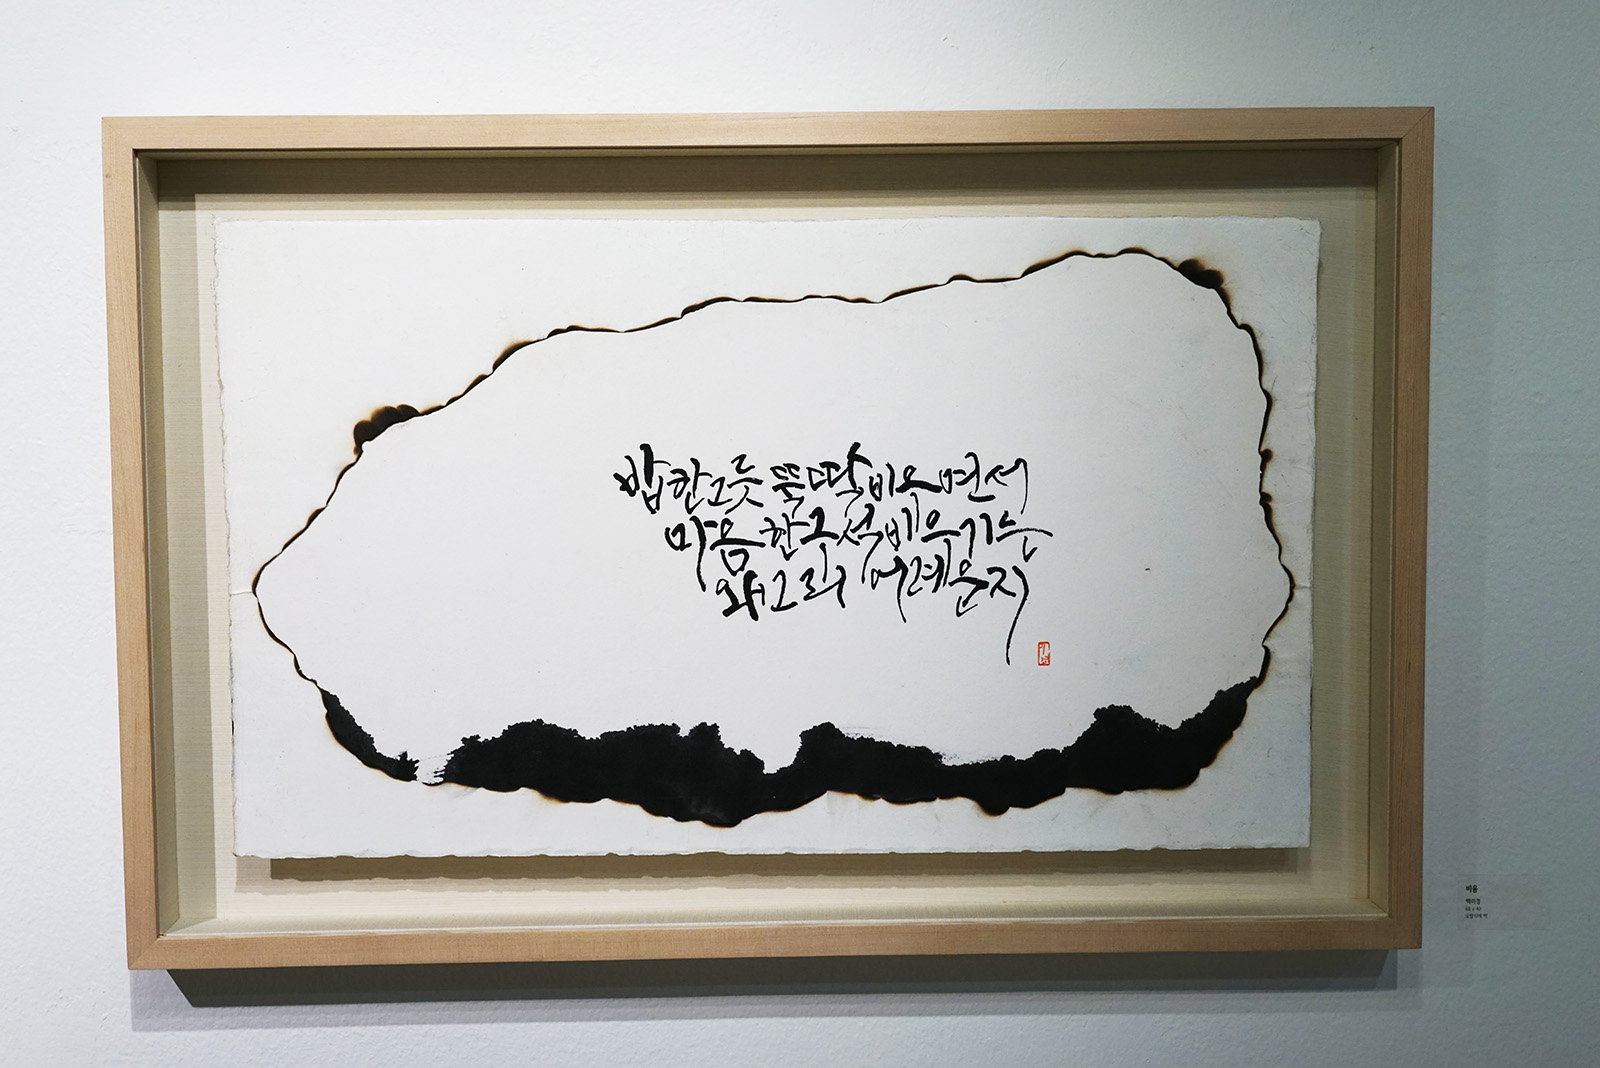 밥 한그릇 뚝딱 비우면서
마음 한구석 비우기는
왜 그리 어려운지
비움